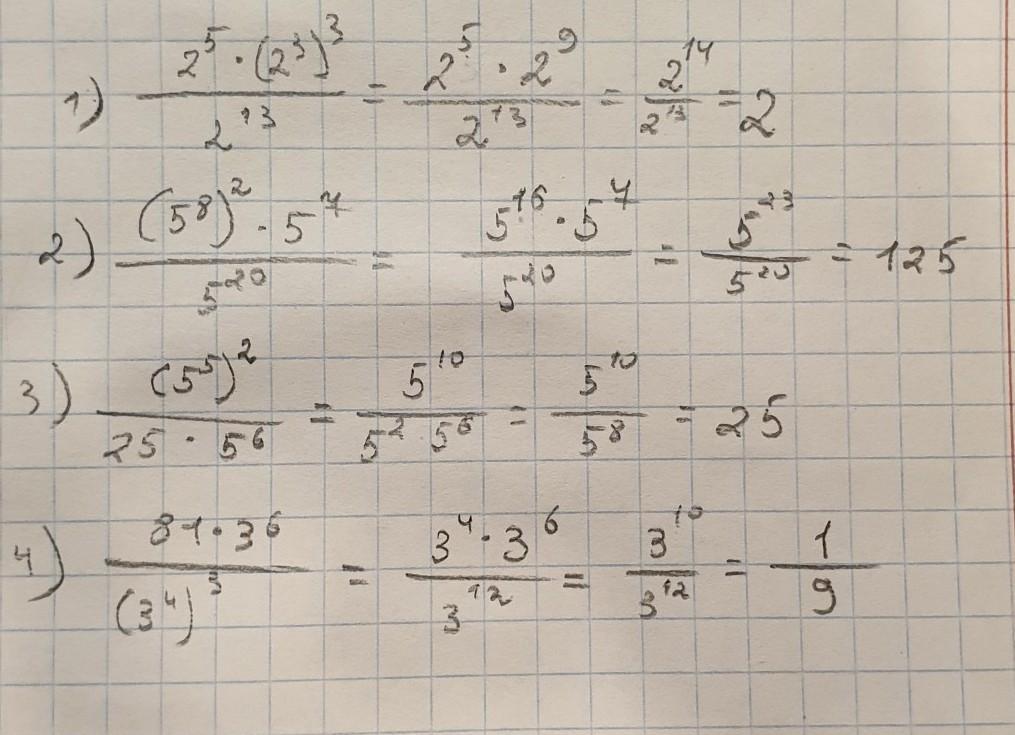 1) \frac{2^5 \cdot (2^3)^3}{2^{13}} = \frac{2^5 \cdot 2^9}{2^{13}} = \frac{2^{14}}{2^{13}} = 2
2) \frac{(5^8)^2 \cdot 5^7}{5^{20}} = \frac{5^{16} \cdot 5^7}{5^{20}} = \frac{5^{23}}{5^{20}} = 125
3) \frac{(5^5)^2}{25 \cdot 5^6} = \frac{5^{10}}{5^2 \cdot 5^6} = \frac{5^{10}}{5^8} = 25
4) \frac{81 \cdot 3^6}{(3^4)^3} = \frac{3^4 \cdot 3^6}{3^{12}} = \frac{3^{10}}{3^{12}} = \frac{1}{9}